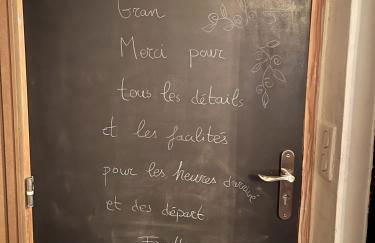 Gran
Merci pour
tous les détails
et les facilités
pour les heures d'arrivé
et des départ